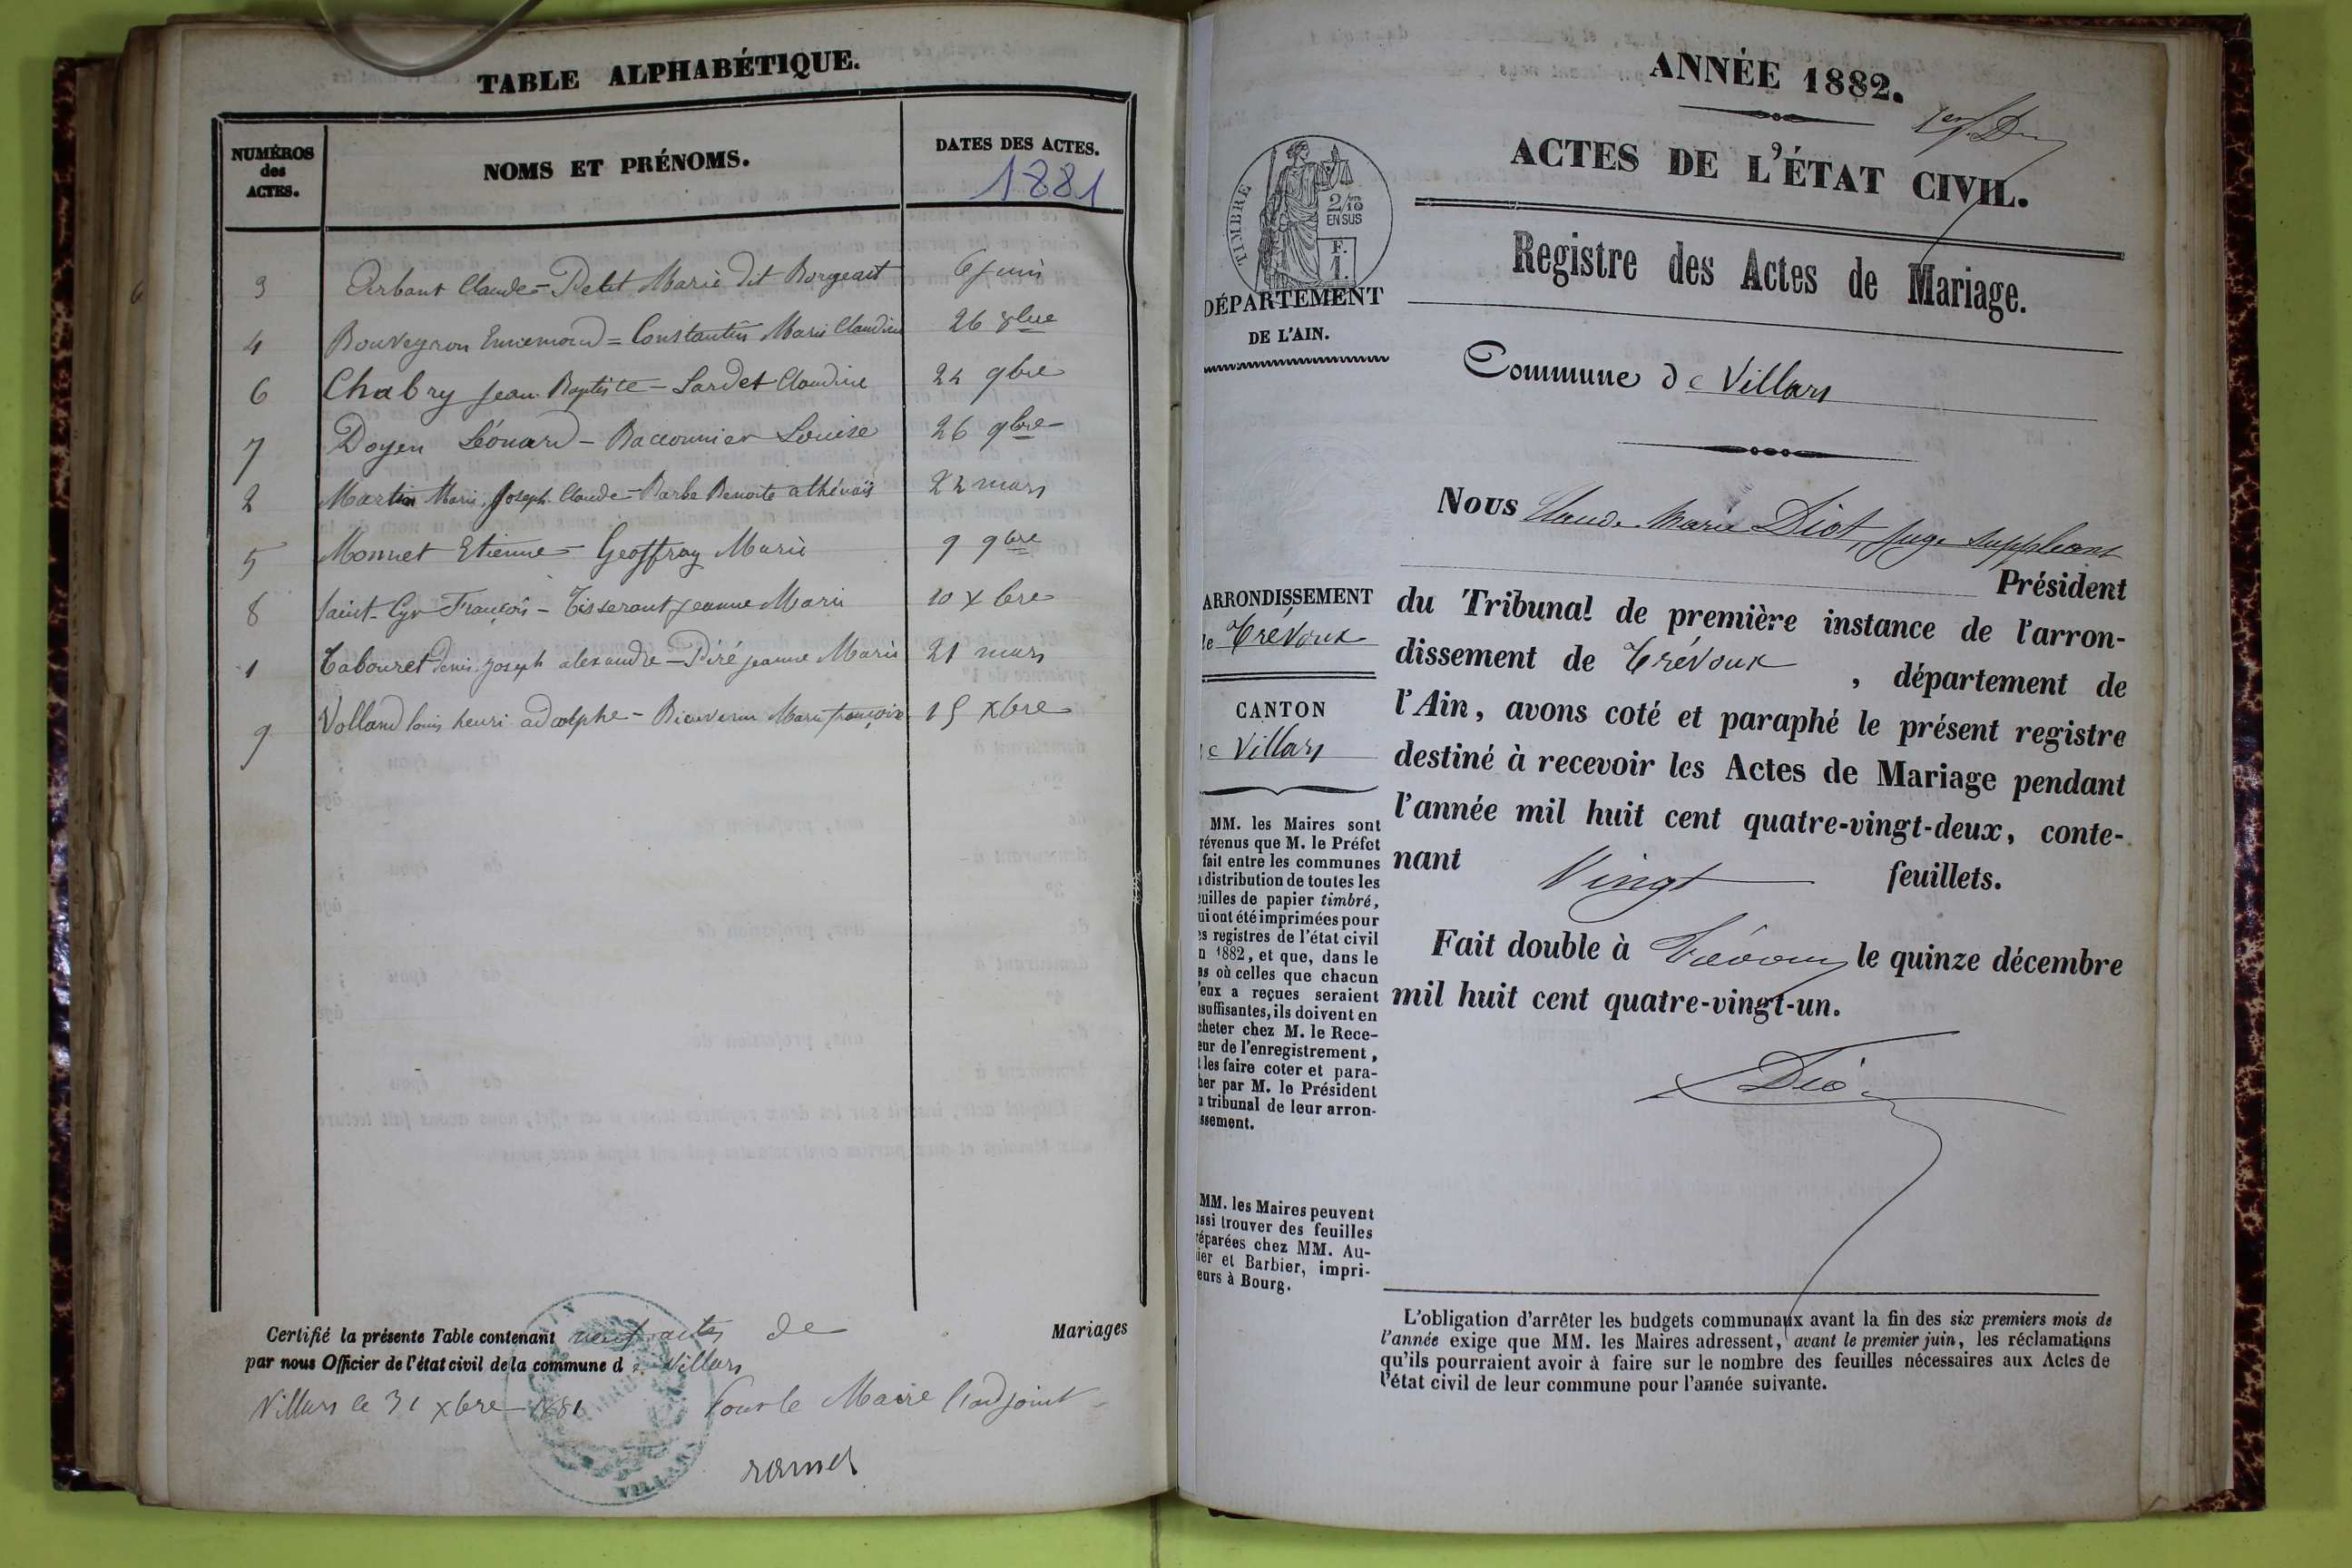 TABLE ALPHABÉTIQUE.
NUMÉROS
des
ACTES.
NOMS ET PRÉNOMS.
DATES DES ACTES.
1881
3 Arbant Claude = Petit Marie dit Borgeait 6 juin
4 Bouveyron Ennemond = Constantin Marie Claudine 26 8bre
6 Chabry Jean Baptiste - Sardet Claudine 24 9bre
7 Doyen Léonard - Baconnier Louise 26 9bre
2 Martin Marie Joseph Claude = Barbe Benoite athénaïs 22 mars
5 Monnet Etienne = Geoffray Marie 9 9bre
8 Saint-Cyr François - Tisserant jeanne Marie 10 xbre
1 Tabouret Denis Joseph alexandre - Piré jeanne Marie 21 mars
9 Volland louis henri adolphe - Bienvenu Marie françoise 15 xbre
Certifié la présente Table contenant neuf actes de Mariages
par nous Officier de l'état civil de la commune de Villars
Villars le 31 xbre 1881 Pour le Maire l'adjoint
ramel
ANNÉE 1882.
1er
ACTES DE L'ÉTAT CIVIL.
TIMBRE
2/10
EN SUS
F.
1.
Registre des Actes de Mariage.
DÉPARTEMENT
DE L'AIN.
Commune de Villars
Nous Claude Marie Diot, juge suppléant
Président
du Tribunal de première instance de l'arron-
dissement de Trévoux, département de
l'Ain, avons coté et paraphé le présent registre
destiné à recevoir les Actes de Mariage pendant
l'année mil huit cent quatre-vingt-deux, conte-
nant Vingt feuillets.
Fait double à Trévoux le quinze décembre
mil huit cent quatre-vingt-un.
Diot
ARRONDISSEMENT
de Trévoux
CANTON
e Villars
MM. les Maires sont
révenus que M. le Préfet
fait entre les communes
distribution de toutes les
euilles de papier timbré,
ui ont été imprimées pour
es registres de l'état civil
n 1882, et que, dans le
as où celles que chacun
'eux a reçues seraient
nsuffisantes, ils doivent en
cheter chez M. le Rece-
eur de l'enregistrement,
t les faire coter et para-
her par M. le Président
u tribunal de leur arron-
ssement.
MM. les Maires peuvent
ussi trouver des feuilles
réparées chez MM. Au-
ier et Barbier, impri-
eurs à Bourg.
L'obligation d'arrêter les budgets communaux avant la fin des six premiers mois de
l'année exige que MM. les Maires adressent, avant le premier juin, les réclamations
qu'ils pourraient avoir à faire sur le nombre des feuilles nécessaires aux Actes de
l'état civil de leur commune pour l'année suivante.